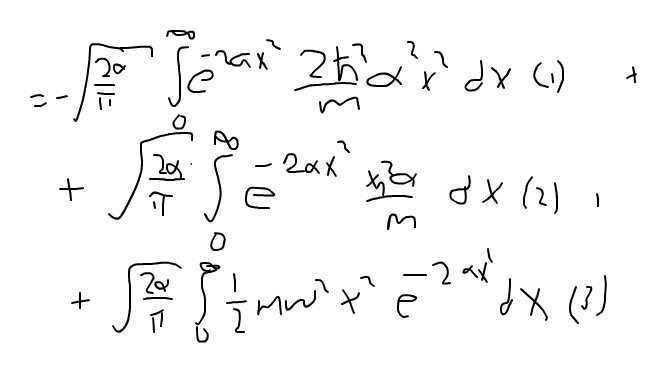 = - √(2α/π) ∫₀^∞ e^(-2αx²) (2ħ²/m) α² x² dx (1) +
+ √(2α/π) ∫₀^∞ e^(-2αx²) (ħ²α/m) dx (2) ,
+ √(2α/π) ∫₀^∞ (1/2) mw² x² e^(-2αx²) dx (3)